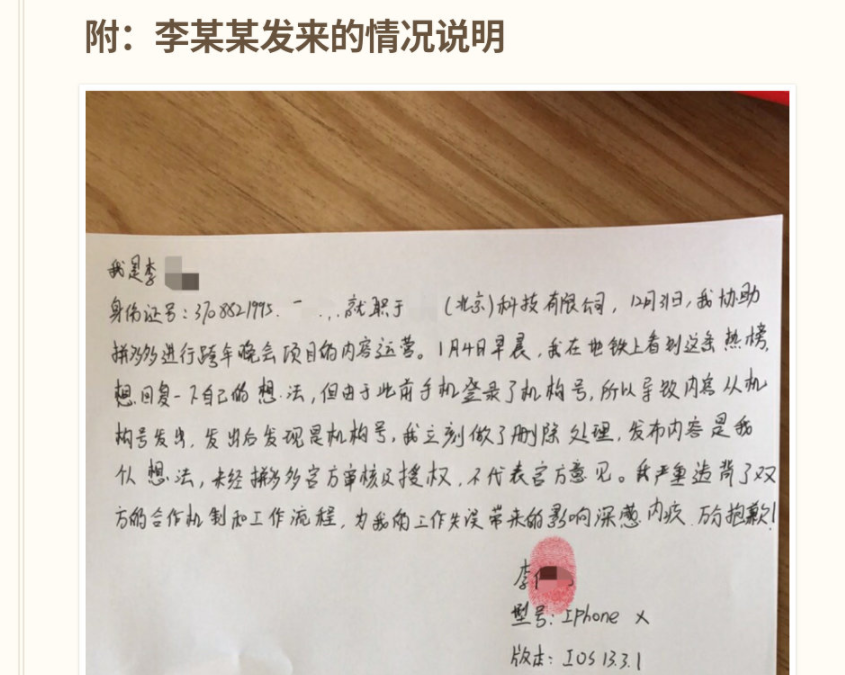 附：李某某发来的情况说明
我是李
身份证号：3708821995. 就职于 （北京）科技有限公司，12月31日，我协助
拼多多进行跨年晚会项目的内容运营。1月4日早晨，我在地铁上看到这条热榜，
想回复一下自己的想法，但由于此前手机登录了机构号，所以导致内容从机
构号发出，发出后发现是机构号，我立刻做了删除处理，发布内容是我
个人想法，未经拼多多官方审核及授权，不代表官方意见。我严重违背了双
方的合作机制和工作流程，为我的工作失误带来的影响深感内疚 万分抱歉！
李
型号：Iphone X
版本：IOS 13.3.1